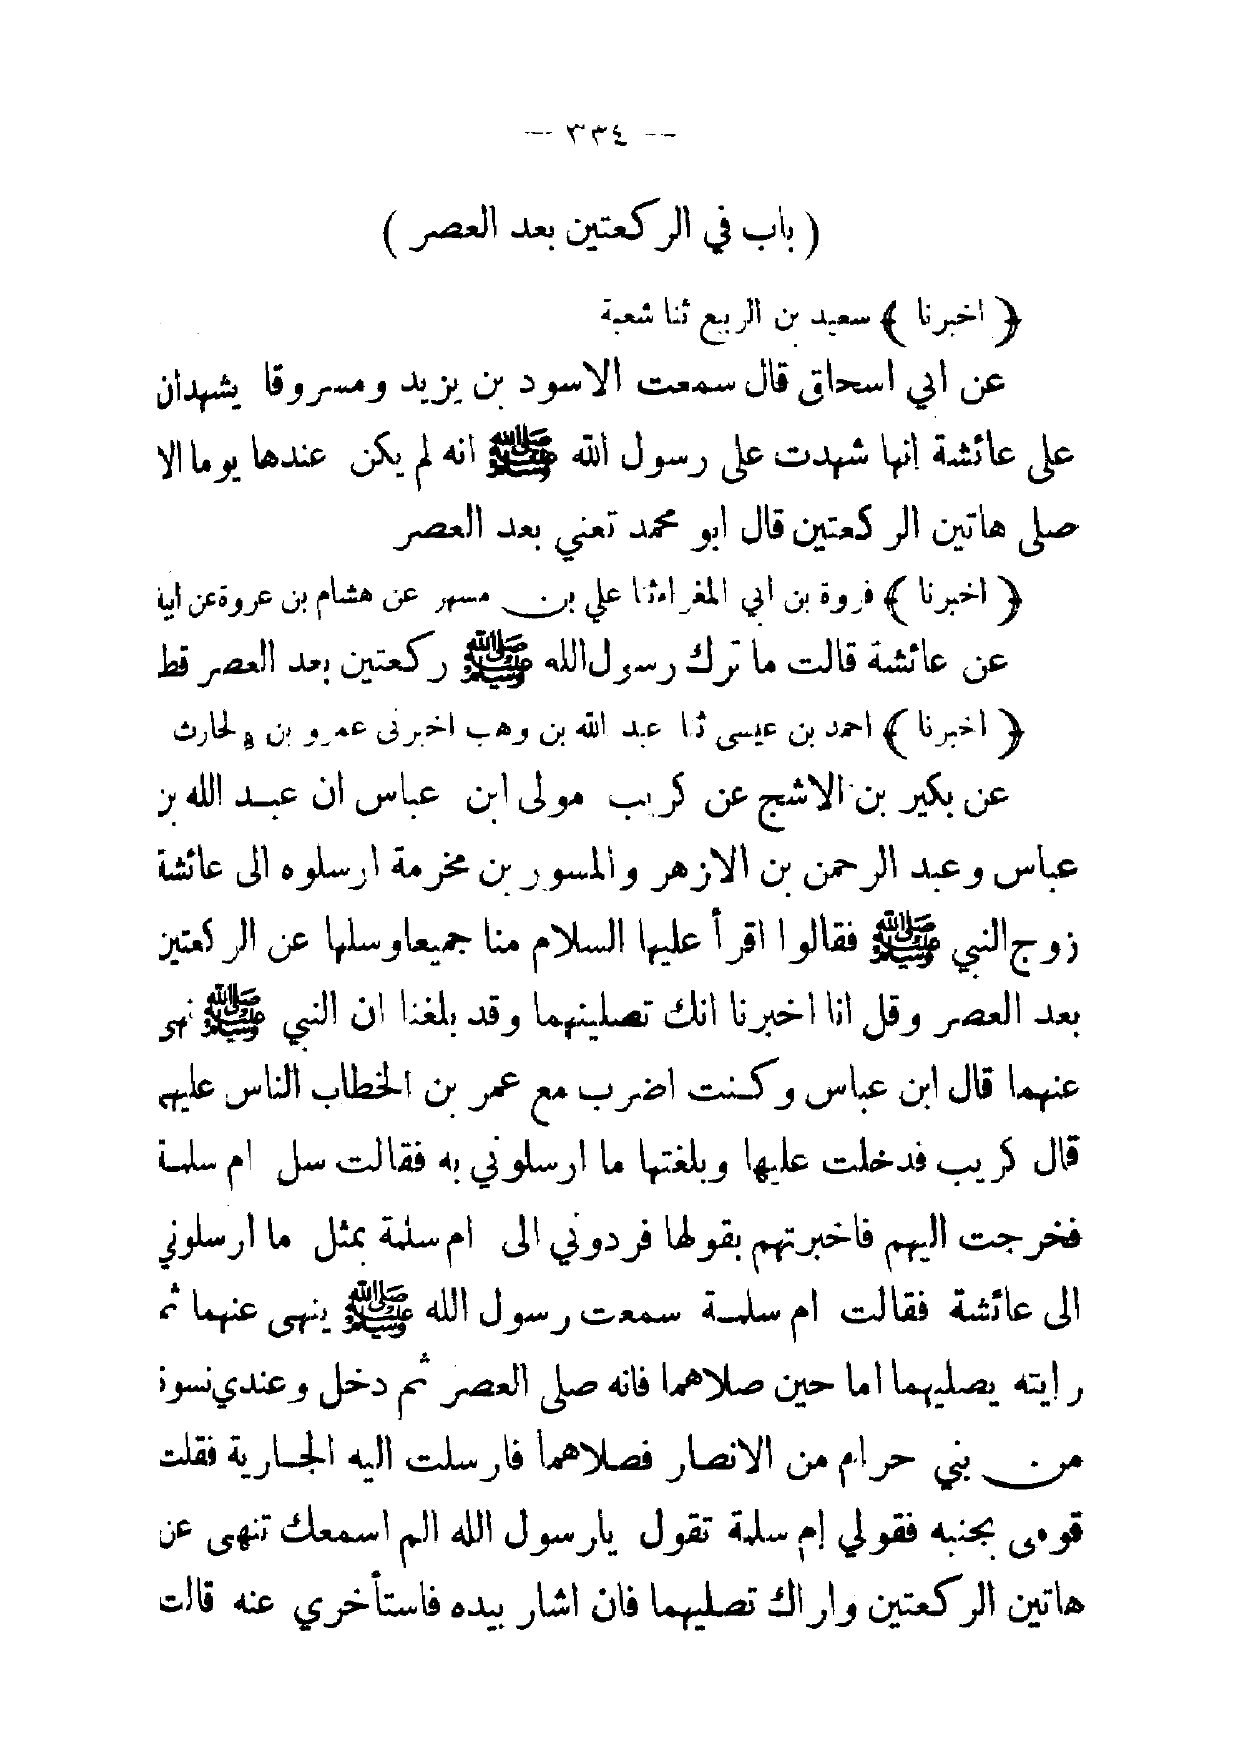 — ٣٣٤ —
( باب في الركعتين بعد العصر )
﴿ اخبرنا ﴾ سعيد بن الربيع ثنا شعبة
عن ابي اسحاق قال سمعت الاسود بن يزيد ومسروقا يشهدان
على عائشة انها شهدت على رسول الله ﷺ انه لم يكن عندها يوما الا
صلى هاتين الركعتين قال ابو محمد تعني بعد العصر
﴿ اخبرنا ﴾ فروة بن ابي المغراء ثنا علي بن مسهر عن هشام بن عروة عن ابيه
عن عائشة قالت ما ترك رسول الله ﷺ ركعتين بعد العصر قط
﴿ اخبرنا ﴾ احمد بن عيسى ثنا عبد الله بن وهب اخبرنى عمرو بن الحارث
عن بكير بن الاشج عن كريب مولى ابن عباس ان عبد الله بن
عباس وعبد الرحمن بن الازهر والمسور بن مخرمة ارسلوه الى عائشة
زوج النبي ﷺ فقالوا اقرأ عليها السلام منا جميعا وسلها عن الركعتين
بعد العصر وقل انا اخبرنا انك تصلينهما وقد بلغنا ان النبي ﷺ نهى
عنهما قال ابن عباس وكنت اضرب مع عمر بن الخطاب الناس عليهما
قال كريب فدخلت عليها وبلغتها ما ارسلوني به فقالت سل ام سلمة
فخرجت اليهم فاخبرتهم بقولها فردوني الى ام سلمة بمثل ما ارسلوني
الى عائشة فقالت ام سلمة سمعت رسول الله ﷺ ينهى عنهما ثم
رايته يصليهما اما حين صلاهما فانه صلى العصر ثم دخل وعندي نسوة
من بني حرام من الانصار فصلاهما فارسلت اليه الجارية فقلت
قومى بجنبه فقولي إم سلمة تقول يا رسول الله الم اسمعك تنهى عن
هاتين الركعتين واراك تصليهما فان اشار بيده فاستأخري عنه قالت